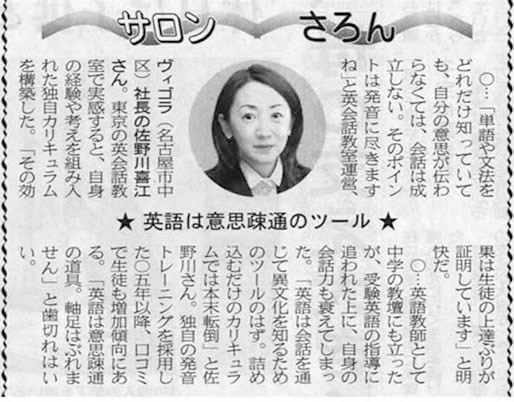 サロン さろん
○…「単語や文法を
どれだけ知っていて
も、自分の意思が伝わ
らなくては、会話は成
立しない。そのポイン
トは発音に尽きます
ね」と英会話教室運営、
ヴィゴラ（名古屋市中
区）社長の佐野川喜江
さん。東京の英会話教
室で実感すると、自身
の経験や考えを組み入
れた独自カリキュラム
を構築した。「その効
★ 英語は意思疎通のツール ★
果は生徒の上達ぶりが
証明しています」と明
快だ。
○…英語教師として
中学の教壇にも立った
が、受験英語の指導に
追われた上に、自身の
会話力も衰えてしまっ
た。「英語は会話を通
じて異文化を知るため
のツールのはず。詰め
込むだけのカリキュラ
ムでは本末転倒」と佐
野川さん。独自の発音
トレーニングを採用し
た〇五年以降、口コミ
で生徒も増加傾向にあ
る。「英語は意思疎通
の道具。軸足はぶれま
せん」と歯切れはい
い。